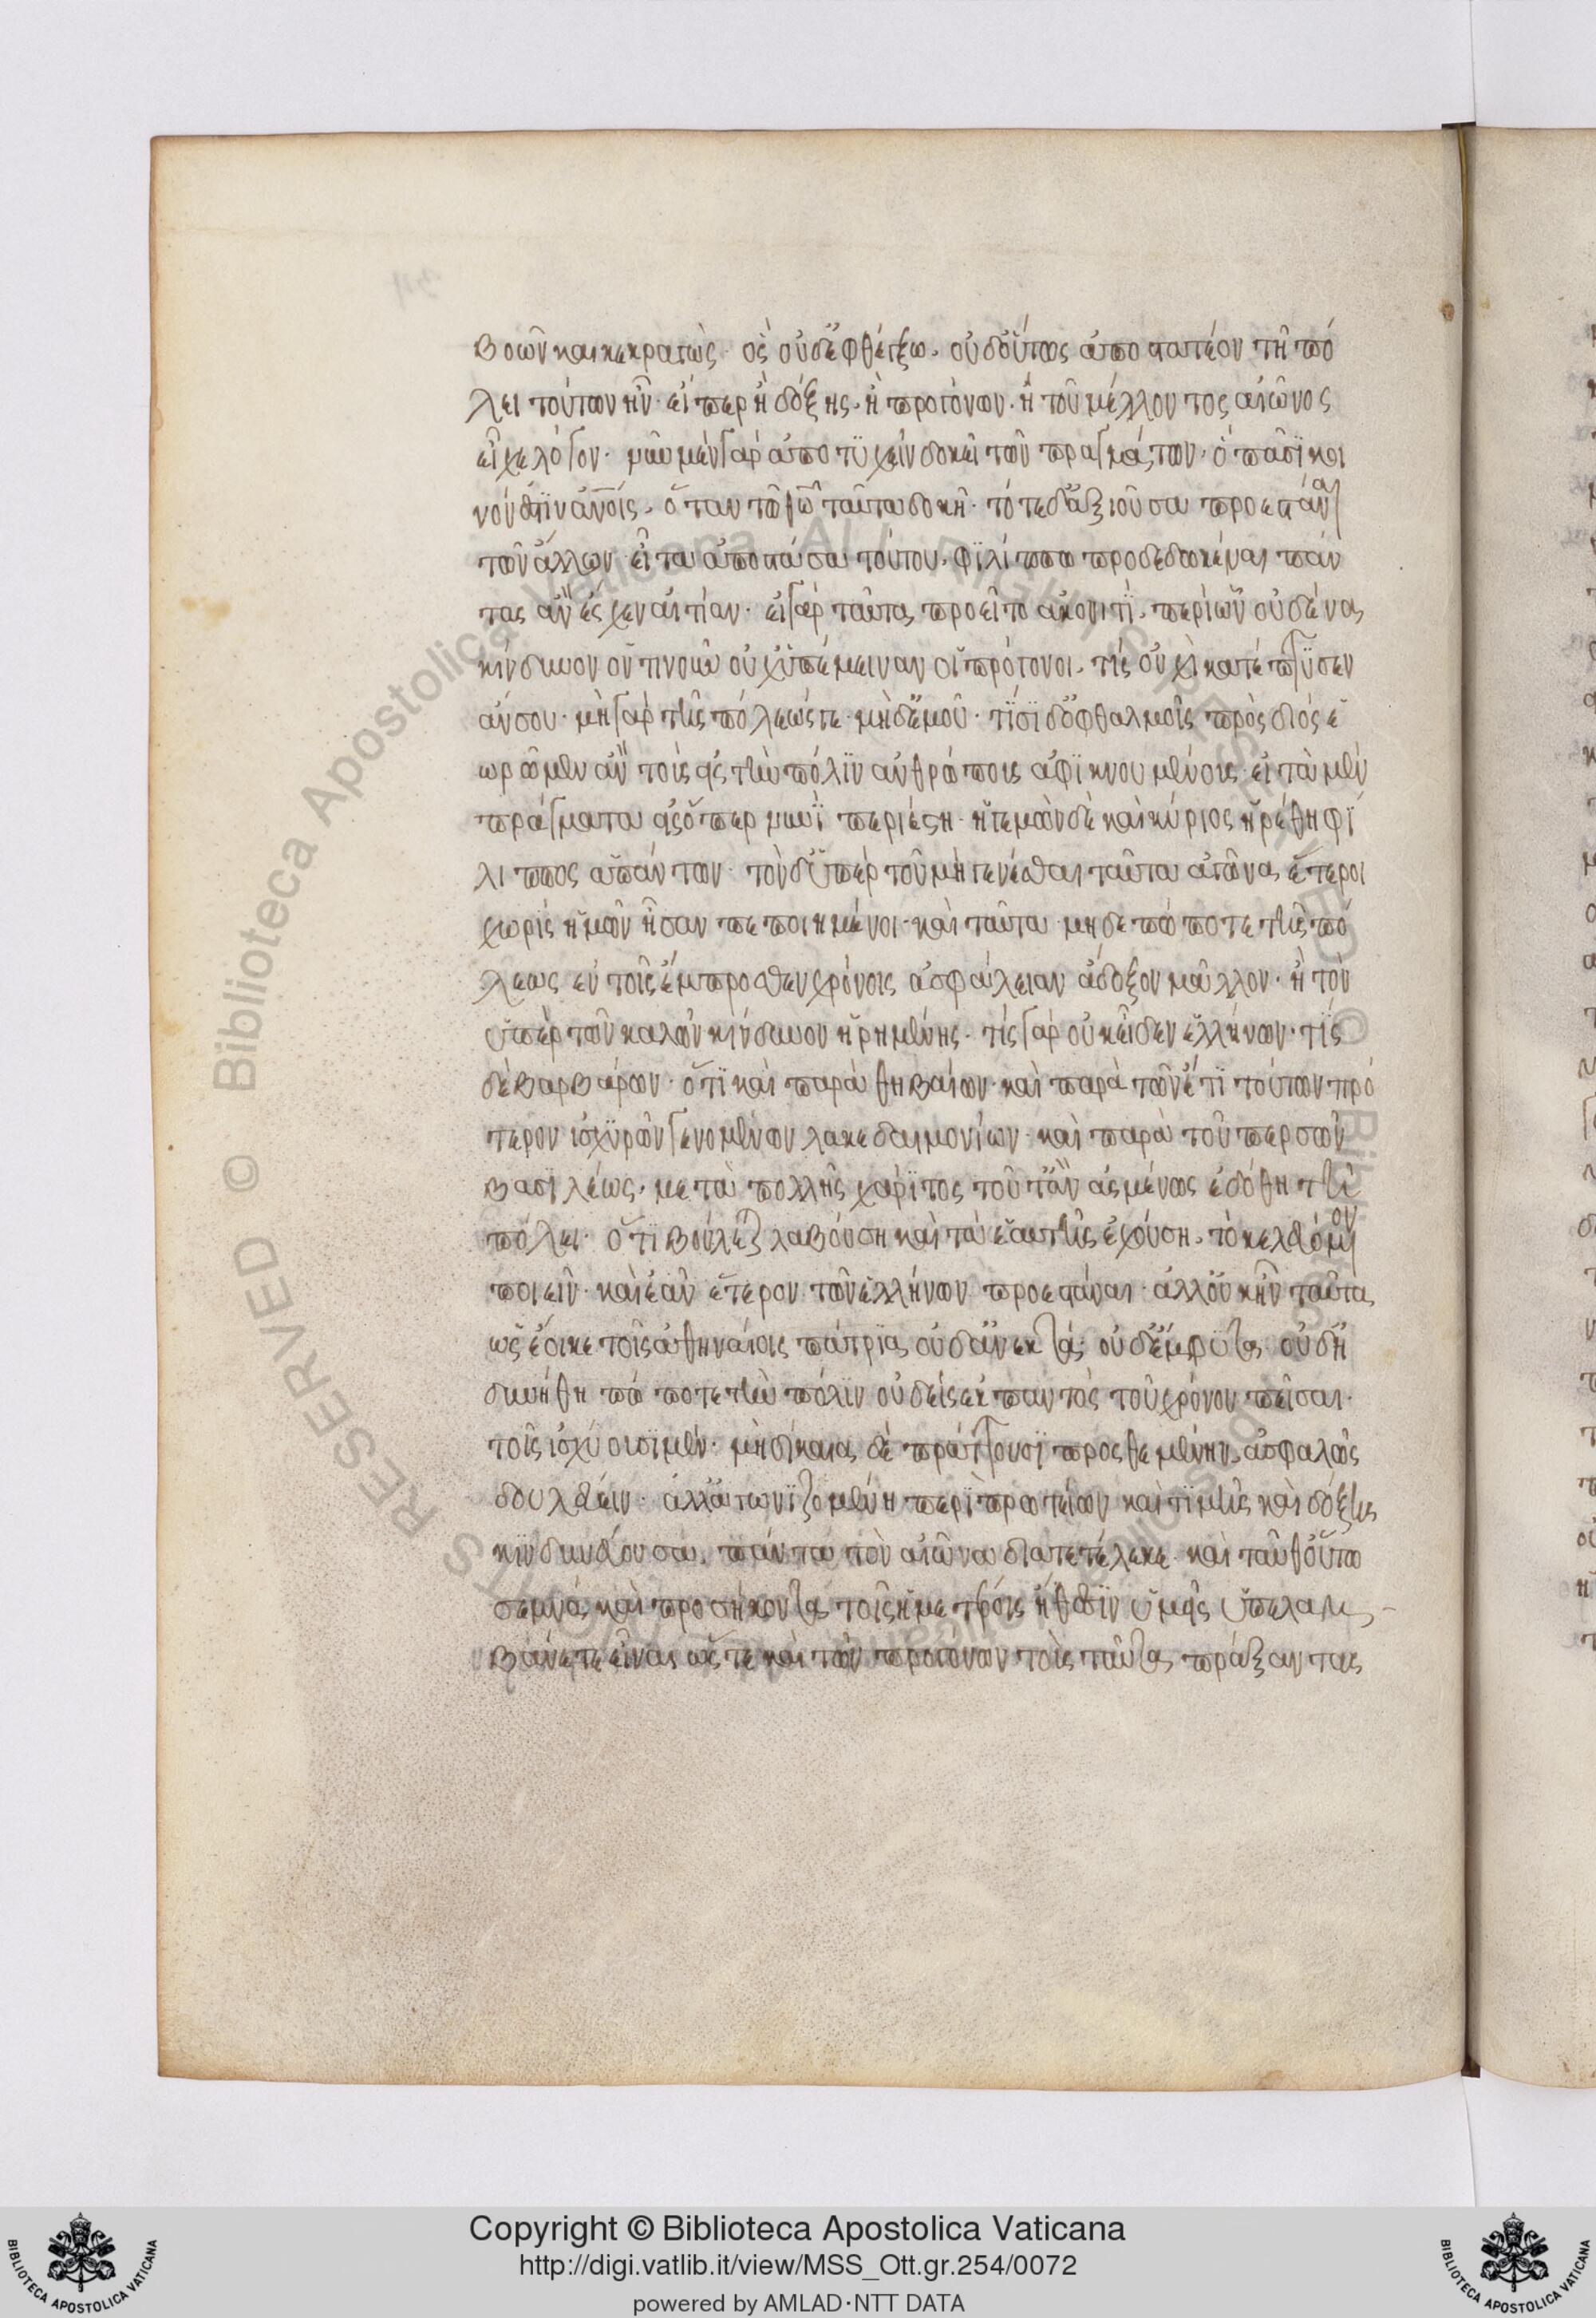 βοῶν καὶ κεκραγὼς· ὃς οὐδ' ἐφθέγξω. οὐδ' οὕτως ἀποστατέον τῇ πό
λει τούτων ἦν· εἴπερ ἢ δόξης. ἢ προγόνων. ἢ τοῦ μέλλοντος αἰῶνος
εἶχε λόγον· νῦν μὲν γὰρ ἀποτυχεῖν δοκεῖ τῶν πραγμάτων. ὃ πᾶσϊ κοι
νόν ἐστϊν ἀνοῖς. ὅταν τῶ θῶ ταῦτα δοκῆ· τότε δ' ἀξιοῦσα προεστάναι
τῶν ἄλλων· εἶτα ἀποστᾶσα τούτου. φϊλίππω προδεδωκέναι πάν
τας ἂν ἔσχεν αἰτίαν· εἰ γὰρ ταῦτα προεῖτο ἀκονιτϊ. περὶ ὧν οὐδένα
κίνδυνον ὅντινοῦν οὐχ ὑπέμειναν οἱ πρόγονοι. τίς οὐχὶ κατέπτυσεν
ἄν σου· μὴ γὰρ τῆς πόλεώς γε· μὴδ' ἐμοῦ· τίσϊ δ' ὀφθαλμοῖς πρὸς διός ἑ
ωρῶμεν ἂν τοὺς εἰς τὴν πόλϊν ἀνθρώπους ἀφϊκνουμένους· εἰ τὰ μὲν
πράγματα εἰς ὅπερ νυνϊ περιέστη· ἡγεμὼν δὲ καὶ κύριος ἡρέθη φϊ
λιππος ἁπάντων· τὸν δ' ὑπὲρ τοῦ μὴ γενέσθαι ταῦτα ἀγῶνα ἕτεροι
χωρὶς ἡμῶν ἦσαν πεποιημένοι· καὶ ταῦτα μηδεπώποτε τῆς πό
λεως ἐν τοῖς ἔμπροσθεν χρόνοις ἀσφάλειαν ἄδοξον μᾶλλον· ἢ τὸν
ὑπὲρ τῶν καλῶν κίνδυνον ἡρημένης· τίς γὰρ οὐκ εἶδεν ἑλλήνων· τίς
δὲ βαρβάρων· ὅτϊ καὶ παρὰ θηβαίων· καὶ παρὰ τῶν ἔτϊ τούτων πρό
τερον ἰσχυρῶν γενομένων λακεδαιμονίων· καὶ παρὰ τοῦ περσῶν
βασϊλέως. μετὰ πολλῆς χάρϊτος τοῦτ' ἂν ἀσμένως ἐδόθη τῆ
πόλει· ὅτϊ βούλεται λαβούση καὶ τὰ ἑαυτῆς ἐχούση. τὸ κελευόμενον
ποιεῖν· καὶ ἐᾶν ἕτερον τῶν ἑλλήνων προεστάναι· ἀλλ' οὐκ ἦν ταῦτα
ὡς ἔοικε τοῖς ἀθηναίοις πάτρϊα οὐδ' ἀνεκτά· οὐδ' ἔμφυτα· οὐδ' ἠ
δυνήθη πώποτε τὴν πόλϊν οὐδεὶς ἐκ παντὸς τοῦ χρόνου πεῖσαι·
τοῖς ἰσχύουσϊ μέν· μὴ δίκαια δὲ πράττουσϊ προσθεμένην ἀσφαλῶς
δουλεύειν· ἀλλ' ἀγωνϊζομένη περὶ πρωτείων καὶ τϊμῆς καὶ δόξης
κϊνδυνεύουσα. πάντα τὸν αἰῶνα διατετέλεκε· καὶ ταῦθ' οὕτω
σεμνὰ καὶ προσήκοντα τοῖς ἡμετέροις ἤθεσϊν ὑμεῖς ὑπελαμ
βάνετε εἶναι ὥστε καὶ τῶν προγόνων τοὺς ταῦτα πράξαντας
Copyright © Biblioteca Apostolica Vaticana
http://digi.vatlib.it/view/MSS_Ott.gr.254/0072
powered by AMLAD·NTT DATA